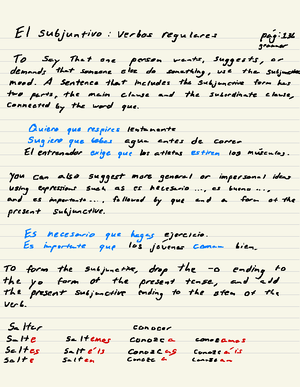 El subjuntivo: Verbos regulares pág: 136
grammar
To say that one person wants, suggests, or
demands that someone else do something, use the subjunctive
mood. A sentence that includes the subjunctive form has
two parts, the main clause and the subordinate clause,
connected by the word que.
Quiero que respires lentamente
Sugiero que bebas agua antes de correr
El entrenador exige que los atletas estiren los músculos.
You can also suggest more general or impersonal ideas
using expressions such as es necesario ..., es bueno ...,
and es importante ..., followed by que and a form of the
present subjunctive.
Es necesario que hagas ejercicio.
Es importante que los jóvenes coman bien.
To form the subjunctive, drop the -o ending to
the yo form of the present tense, and add
the present subjunctive ending to the stem of the
verb.
Saltar conocer
Salte Saltemos Conozca conozcamos
Saltes Saltéis Conozcas Conozcáis
Salte Salten Conozca conozcan